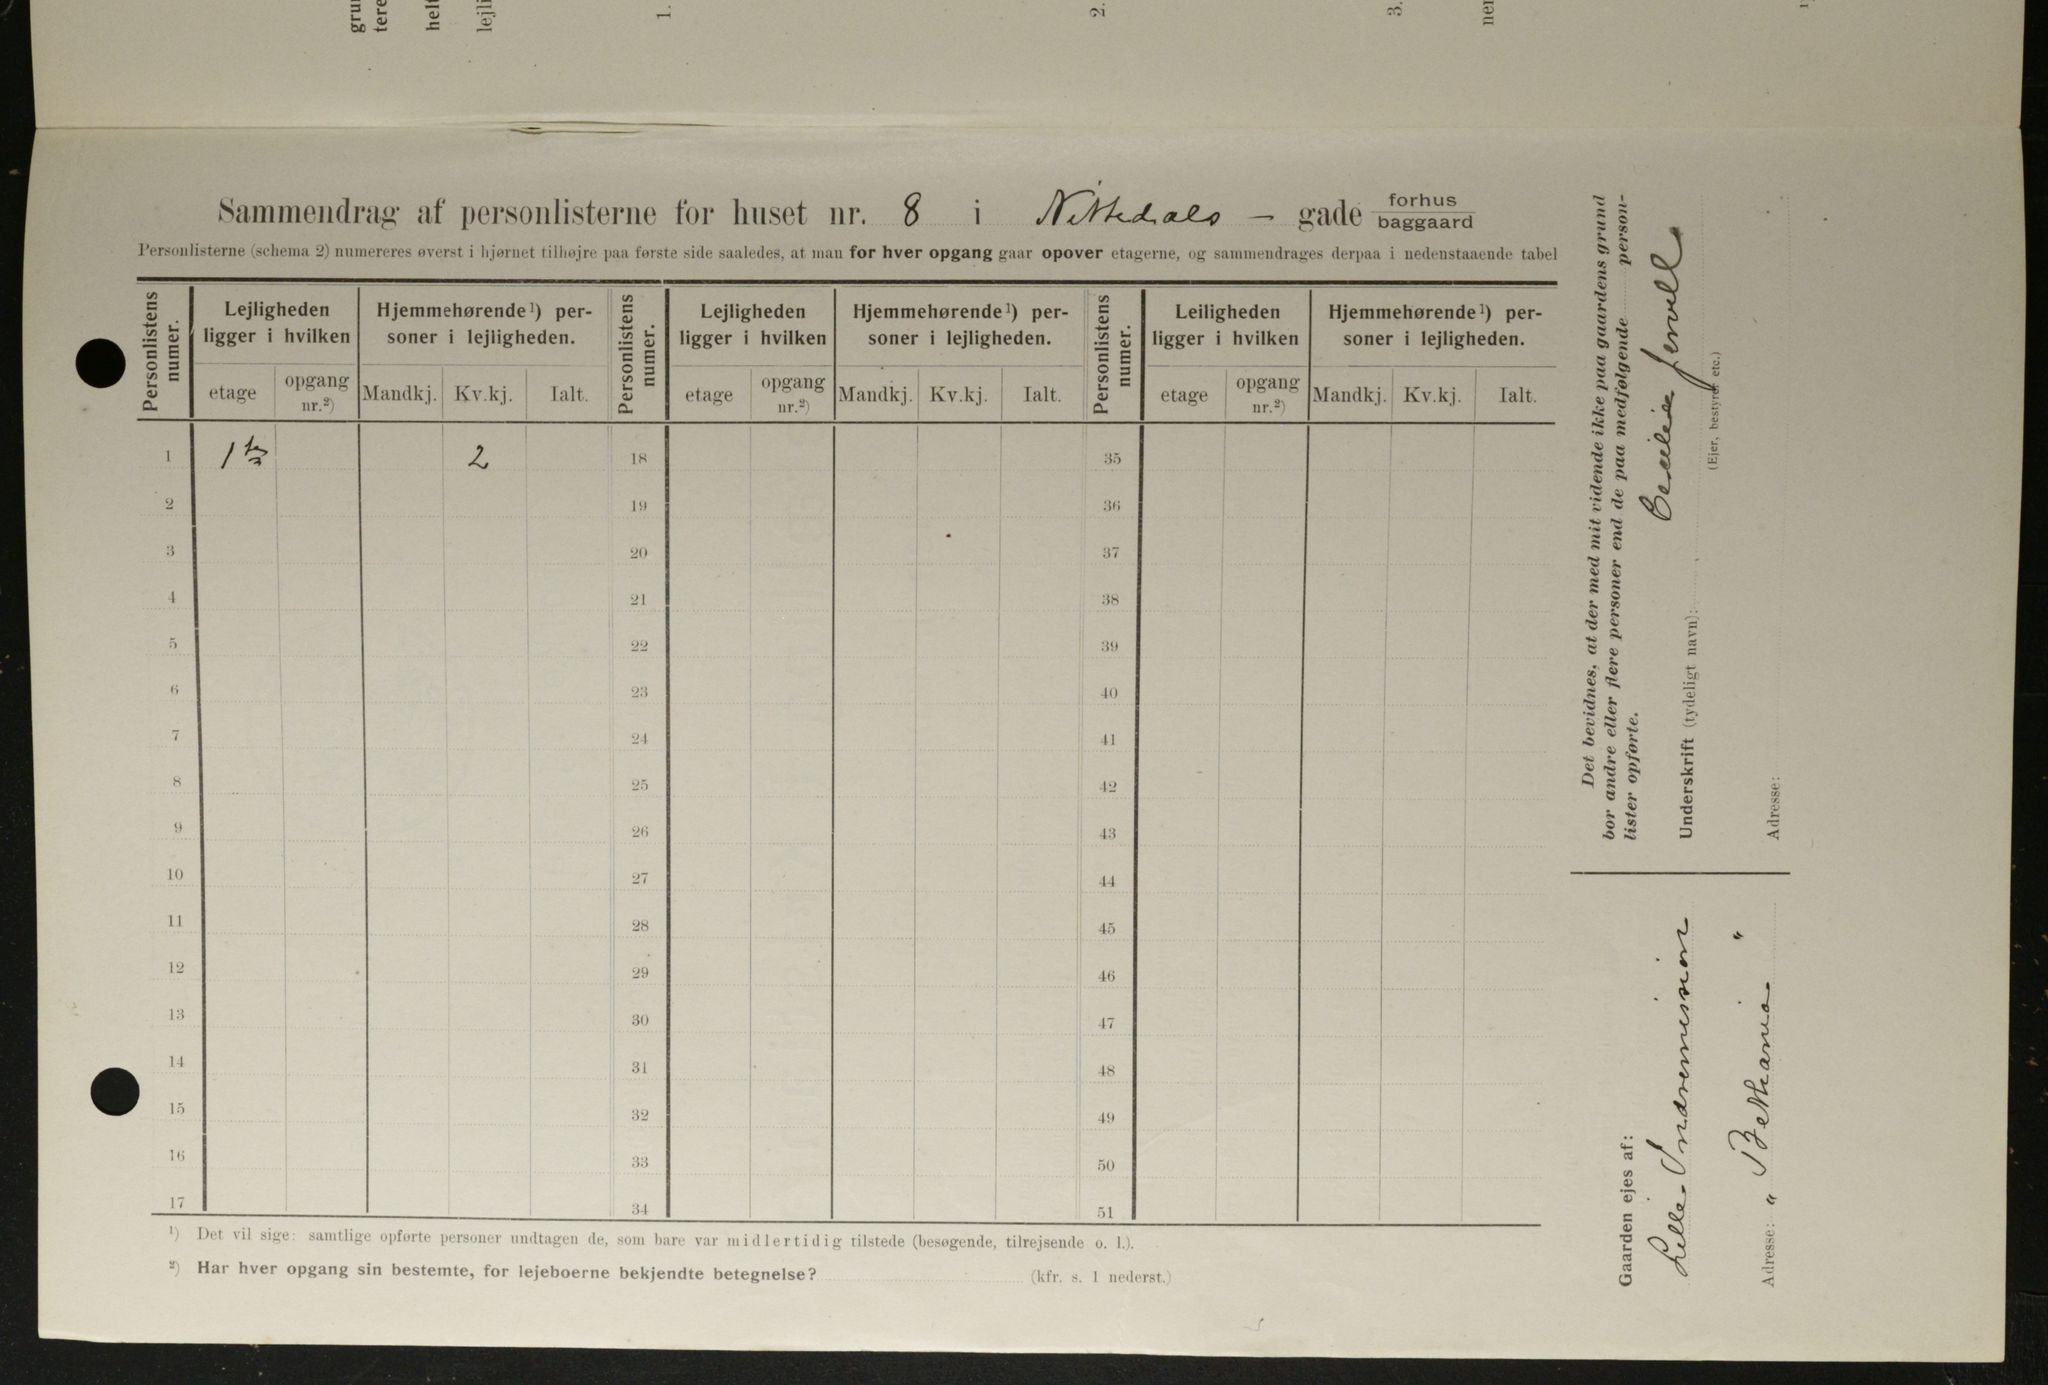 grun
tere
helt
lejli
1.
2.
3.
ner
Sammendrag af personlisterne for huset nr. 8 i Nittedals - gade forhus
baggaard
Personlisterne (schema 2) numereres øverst i hjørnet tilhøjre paa første side saaledes, at man for hver opgang gaar opover etagerne, og sammendrages derpaa i nedenstaaende tabel
Personlistens numer.
Lejligheden ligger i hvilken
Hjemmehørende¹) per-
soner i lejligheden.
etage
opgang nr.²)
Mandkj.
Kv.kj.
Ialt.
Personlistens numer.
Lejligheden ligger i hvilken
Hjemmehørende¹) per-
soner i lejligheden.
etage
opgang nr.²)
Mandkj.
Kv.kj.
Ialt.
Personlistens numer.
Leiligheden ligger i hvilken
Hjemmehørende¹) per-
soner i lejligheden.
etage
opgang nr.²)
Mandkj.
Kv.kj.
Ialt.
1 2 18 35
2 19 36
3 20 37
4 21 38
5 22 39
6 23 40
7 24 41
8 25 42
9 26 43
10 27 44
11 28 45
12 29 46
13 30 47
14 31 48
15 32 49
16 33 50
17 34 51
¹) Det vil sige: samtlige opførte personer undtagen de, som bare var midlertidig tilstede (besøgende, tilrejsende o. l.).
²) Har hver opgang sin bestemte, for lejeboerne bekjendte betegnelse? (kfr. s. 1 nederst.)
Det bevidnes, at der med mit vidende ikke paa gaardens grund
bor andre eller flere personer end de paa medfølgende person-
lister opførte.
Underskrift (tydeligt navn): Cecilie Jervell
(Ejer, bestyrer etc.)
Adresse:
Gaarden ejes af:
Lille Indremission
Adresse: " Bethania "